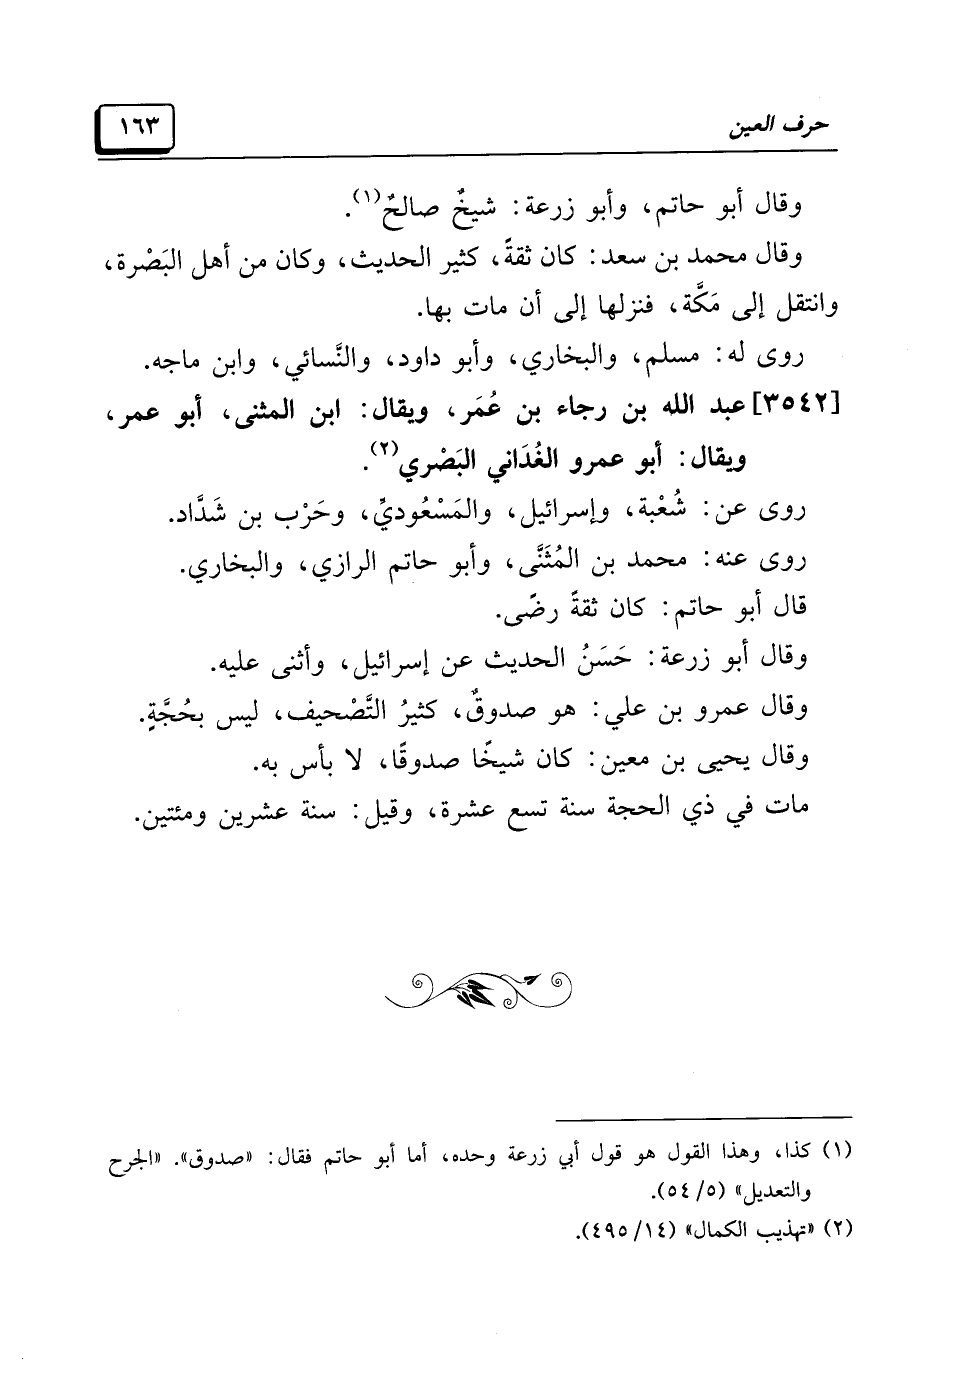 حرف العين
١٦٣
وقال أبو حاتم، وأبو زرعة: شيخٌ صالحٌ(١).
وقال محمد بن سعد: كان ثقةً، كثير الحديث، وكان من أهل البَصْرة،
وانتقل إلى مَكَّة، فنزلها إلى أن مات بها.
روى له: مسلم، والبخاري، وأبو داود، والنَّسائي، وابن ماجه.
[٣٥٤٢] عبد الله بن رجاء بن عُمَر، ويقال: ابن المثنى، أبو عمر،
ويقال: أبو عمرو الغُدَاني البَصْري(٢).
روى عن: شُعْبة، وإسرائيل، والمَسْعُوديِّ، وحَرْب بن شَدَّاد.
روى عنه: محمد بن المُثَنَّى، وأبو حاتم الرازي، والبخاري.
قال أبو حاتم: كان ثقةً رضًى.
وقال أبو زرعة: حَسَنُ الحديث عن إسرائيل، وأثنى عليه.
وقال عمرو بن علي: هو صدوقٌ، كثيرُ التَّصْحيف، ليس بحُجَّةٍ.
وقال يحيى بن معين: كان شيخًا صدوقًا، لا بأس به.
مات في ذي الحجة سنة تسع عشرة، وقيل: سنة عشرين ومئتين.
(١) كذا، وهذا القول هو قول أبي زرعة وحده، أما أبو حاتم فقال: «صدوق». «الجرح
والتعديل» (٥/ ٥٤).
(٢) «تهذيب الكمال» (١٤/ ٤٩٥).